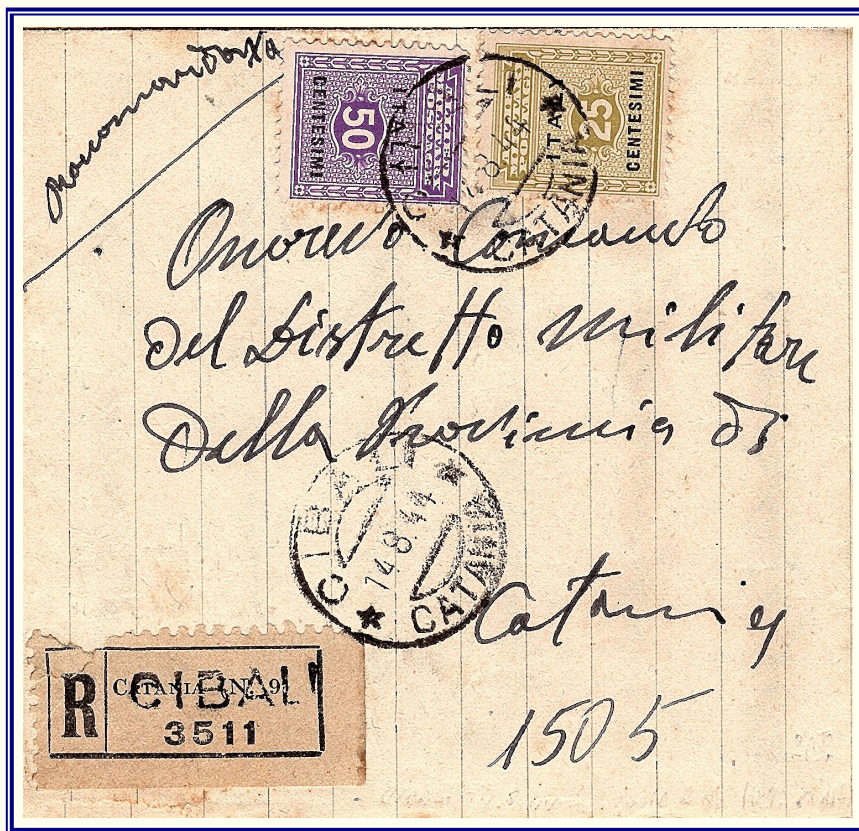 Raccomandata
50
CENTESIMI
ITALY
25
CENTESIMI
ITALY
CATANIA
Onorevo Comando
del Distretto Militare
Della Provincia di
CIBALI
14.8.44
CATANIA
Catania
1505
R
CATANIA N. 9
CIBALI
3511